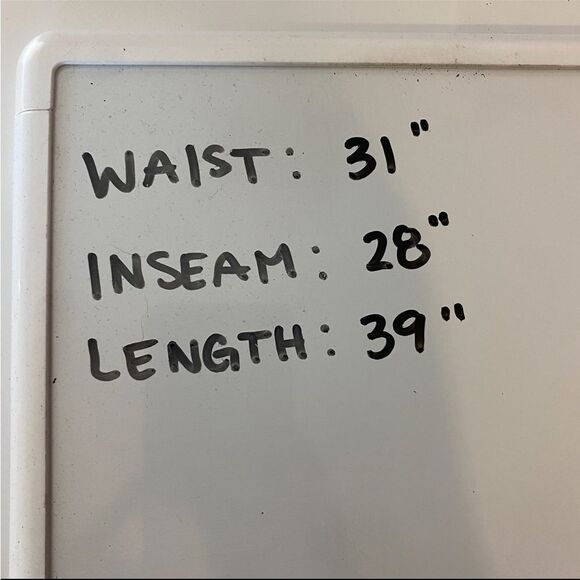 WAIST: 31"
INSEAM: 28"
LENGTH: 39"